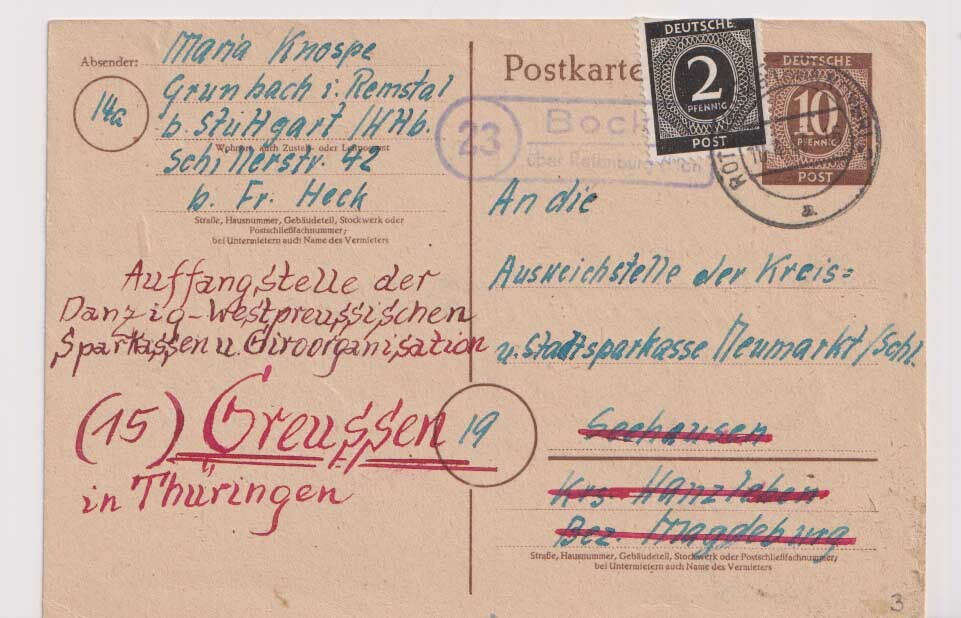 Absender:
Maria Knospe
Grunbach i. Remstal
14a
b. Stuttgart /Wttb.
Wohnort, auch Zustell- oder Leitpostamt
Schillerstr. 42
b. Fr. Heck
Straße, Hausnummer, Gebäudeteil, Stockwerk oder
Postschließfachnummer;
bei Untermietern auch Name des Vermieters
Auffangstelle der
Danzig-Westpreussischen
Sparkassen u. Giroorganisation
(15) Greussen
in Thüringen
Postkarte
DEUTSCHE
2
PFENNIG
POST
DEUTSCHE
10
PFENNIG
POST
23
Boch
über
ROT
a
An die
Ausweichstelle der Kreis=
u. Stadtsparkasse Neumarkt/Schl.
19
Seehausen
Krs. Wanzleben
Bez. Magdeburg
Straße, Hausnummer, Gebäudeteil, Stockwerk oder Postschließfachnummer;
bei Untermietern auch Name des Vermieters
3